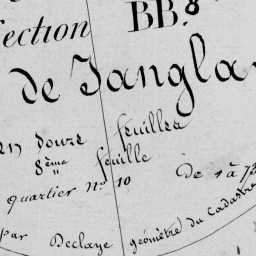 Section BB.8
de Jangla
en douze feuilles
8ème feuille
quartier No 10 De 1 à 73
par Declaye géomètre du cadastre